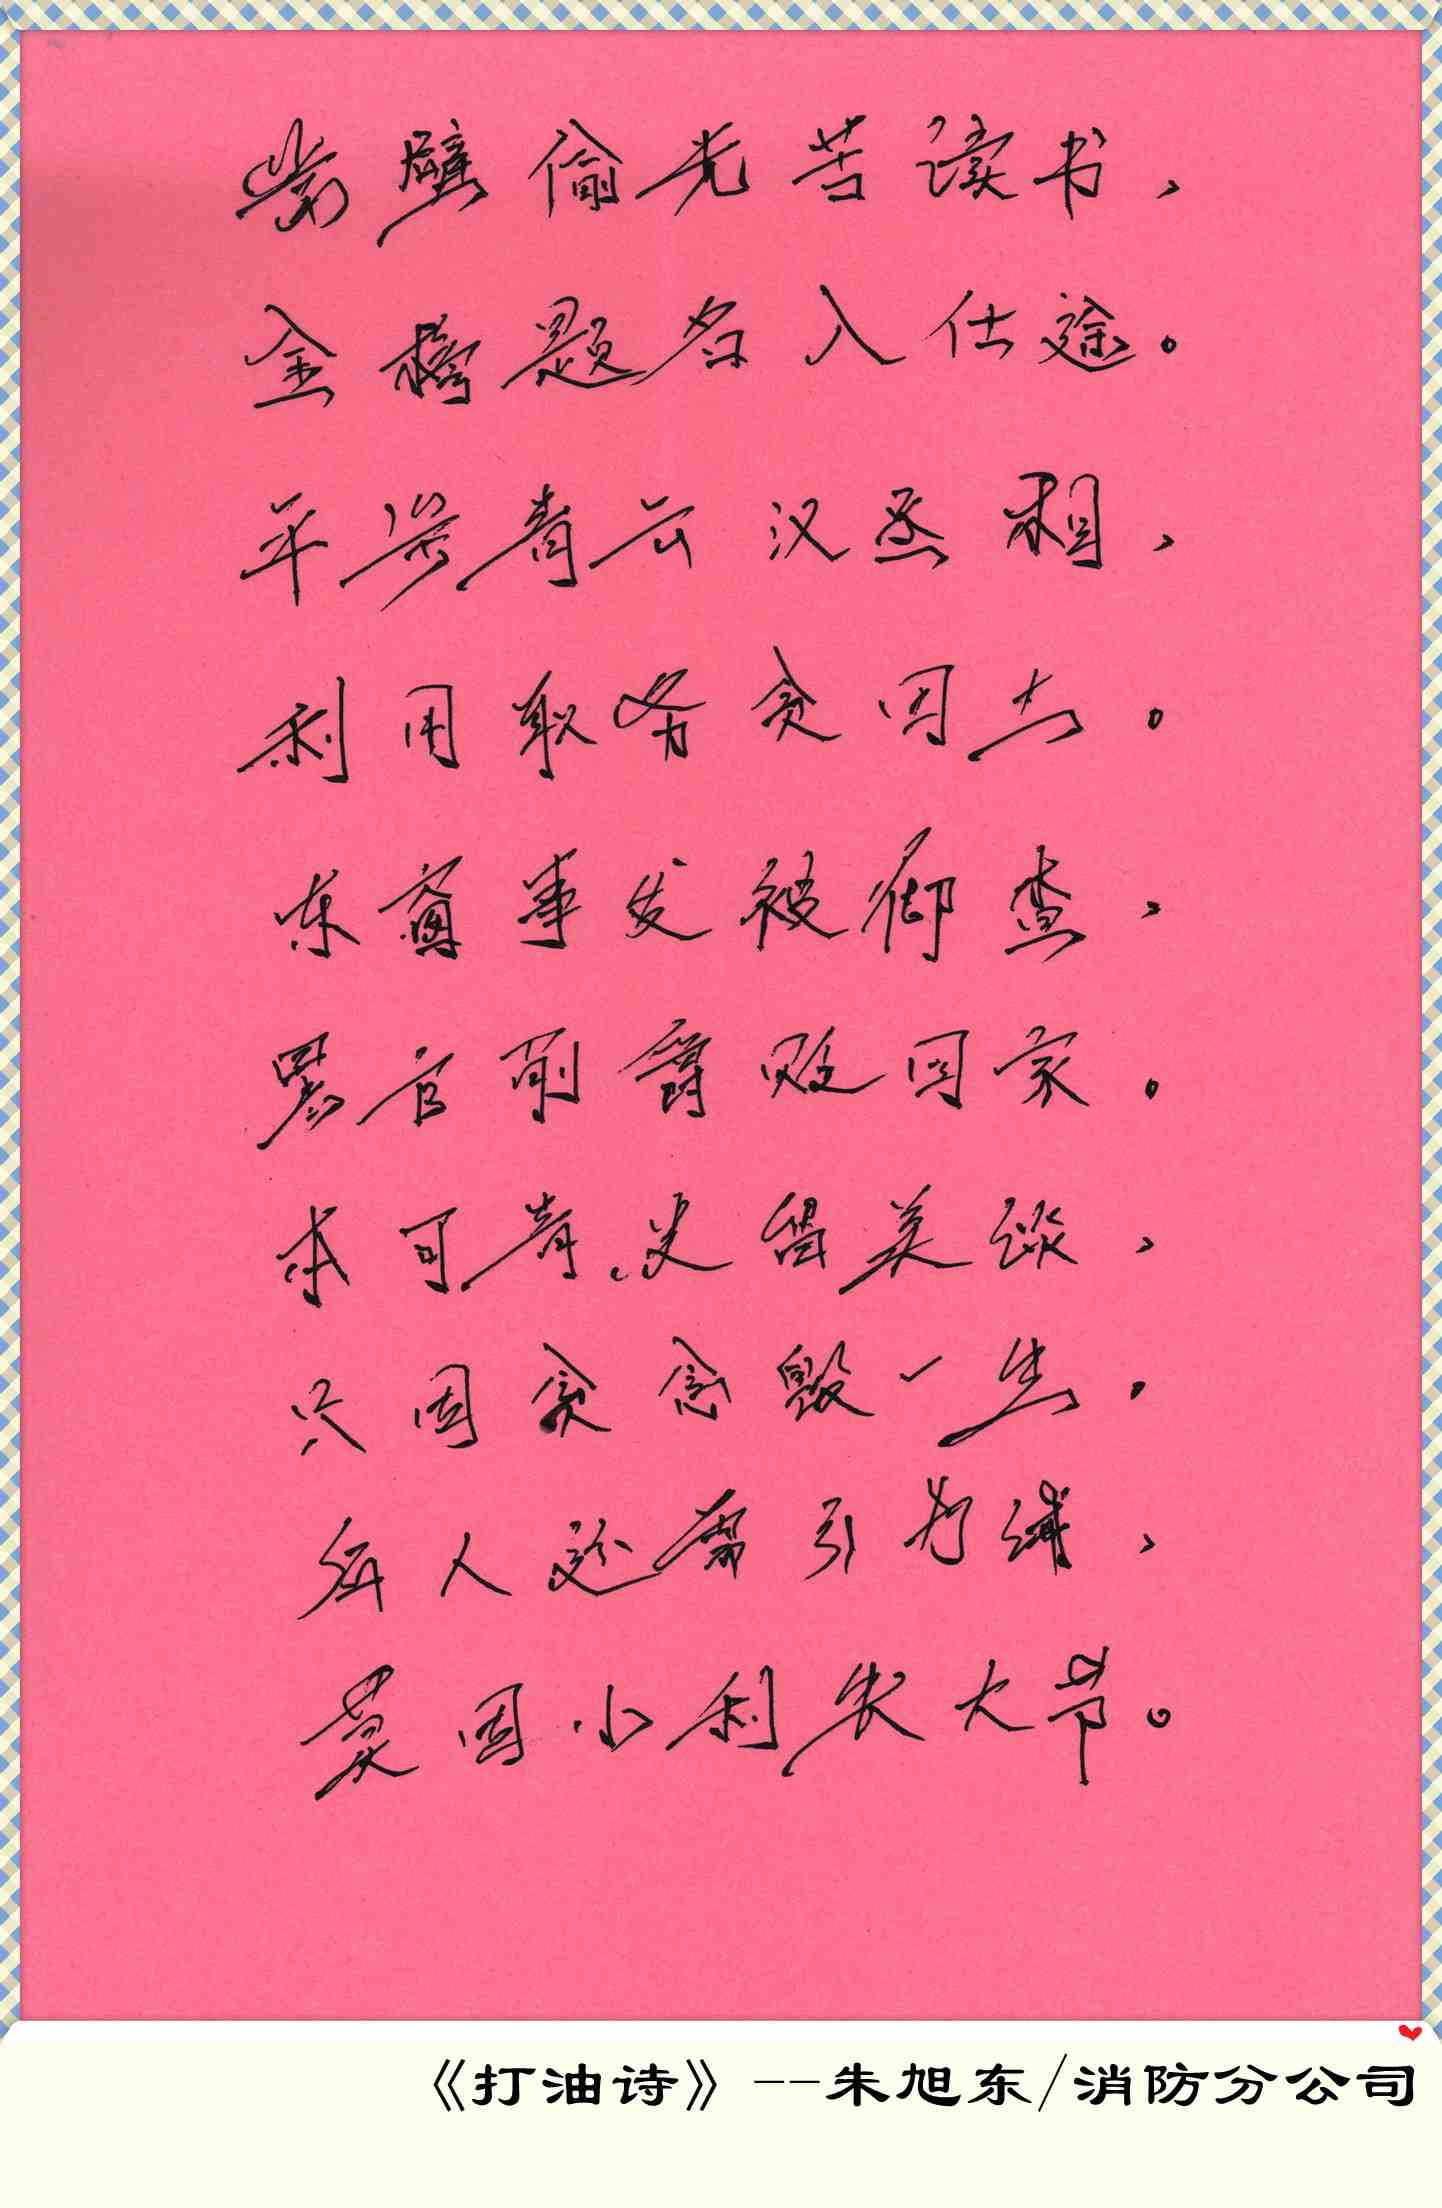 凿壁偷光苦读书，
金榜题名入仕途。
平步青云汉丞相，
利用职务贪国土。
东窗事发被御查，
罢官削爵贬回家。
本可青史留美谈，
只因贪念毁一生。
后人还需引为诫，
莫因小利失大节。
《打油诗》--朱旭东/消防分公司